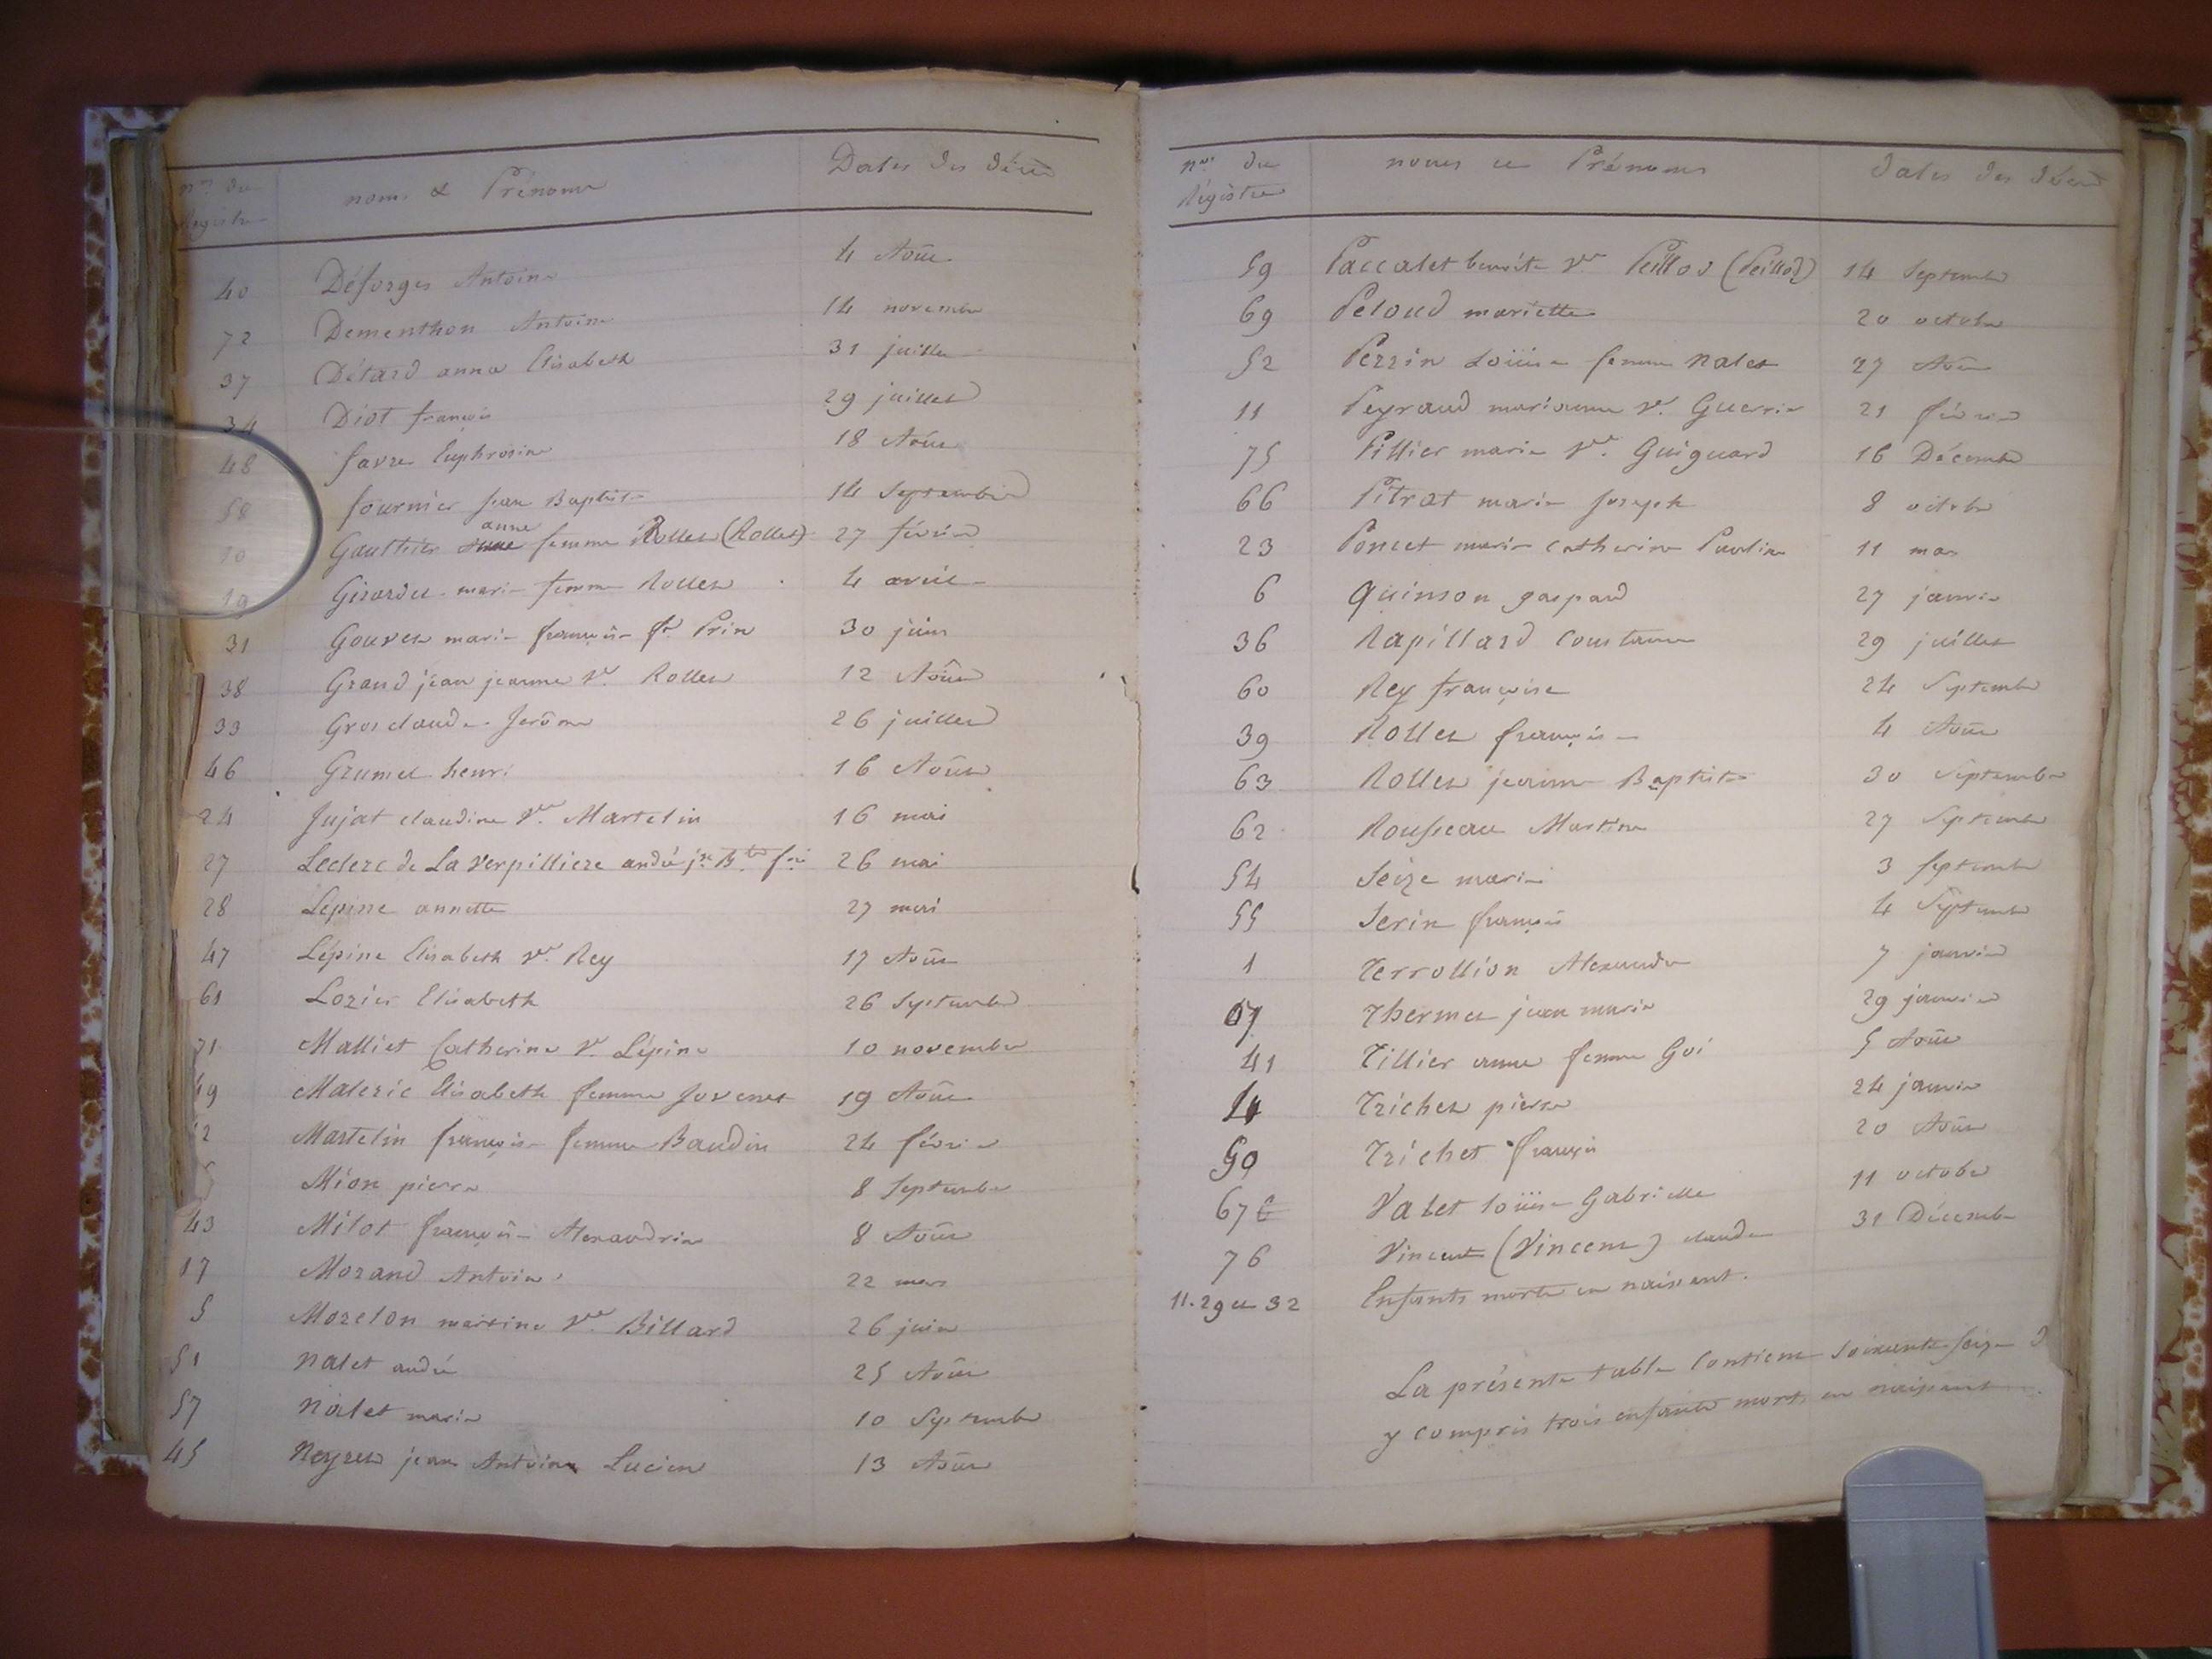 nos. du Registre noms & Prénoms Dates des décès
40 Déforges Antoine 4 Août
72 Dementhon Antoine 14 novembre
37 Détard anna Elisabeth 31 juillet
34 Diot françois 29 juillet
48 favre Euphrosine 18 Août
58 fournier jean Baptiste 14 Septembre
10 Gauthier anne femme Rollet (Rollet) 27 février
19 Girardet marie femme Rollet 4 avril
31 Gouvet marie françoise fe Prin 30 juin
38 Grand jean jeanne Ve. Rollet 12 Août
33 Gros claude Jerôme 26 juillet
46 Grumet henri 16 Août
24 Jujat claudine Vve. Martelin 16 mai
27 Leclerc de La Verpilliere andré jn. Bte. 26 mai
28 Lépine annette 27 mai
47 Lépine Elisabeth Ve. Rey 17 Août
61 Lozier Elisabeth 26 Septembre
71 Malliet Catherine Ve. Lépine 10 novembre
49 Materic Elisabeth femme Jovenet 19 Août
12 Martelin françoise femme Baudin 24 février
Mion pierre 8 Septembre
43 Milot françois Alexandrin 8 Août
17 Morand Antoine 22 mars
5 Morelon martine Vve. Billard 26 juin
51 nalet andré 25 Août
57 nalet marie 10 Septembre
45 neyret jean Antoine Lucien 13 Août
nos. du Régistre noms et Prénoms dates des décès
59 Paccalet benoite Vve Peillod (Peillod) 14 Septembre
69 Peloud mariette 20 octobre
52 Perrin Loüise femme nalet 27 Août
11 Peyraud marianne Ve. Guerrin 21 février
75 Pillier marie Vve. Guignard 16 Décembre
66 Pitrat marie Joseph 8 octobre
23 Poncet marie catherine Pauline 11 mai
6 Quinson gaspard 27 janvier
36 Rapillard Constance 29 juillet
60 Rey françoise 24 Septembre
39 Rollet françoise 4 Août
63 Rollet jeanne Baptiste 30 Septembre
62 Rousseau Martine 27 Septembre
54 Seize marie 3 Septembre
55 Serin françois 4 Septembre
1 Terrollion Alexandre 7 janvier
07 Thermet jean marie 29 janvier
41 Tillier anne femme Goi 5 Août
Trichet pierre 24 janvier
50 Trichet françois 20 Août
67 Valet loüise Gabrielle 11 octobre
76 Vincent (Vincent) claude 31 Décembre
11. 29 et 32 Enfants morts en naissant.
La présente table Contient Soixante seize
y compris trois enfants morts en naissant